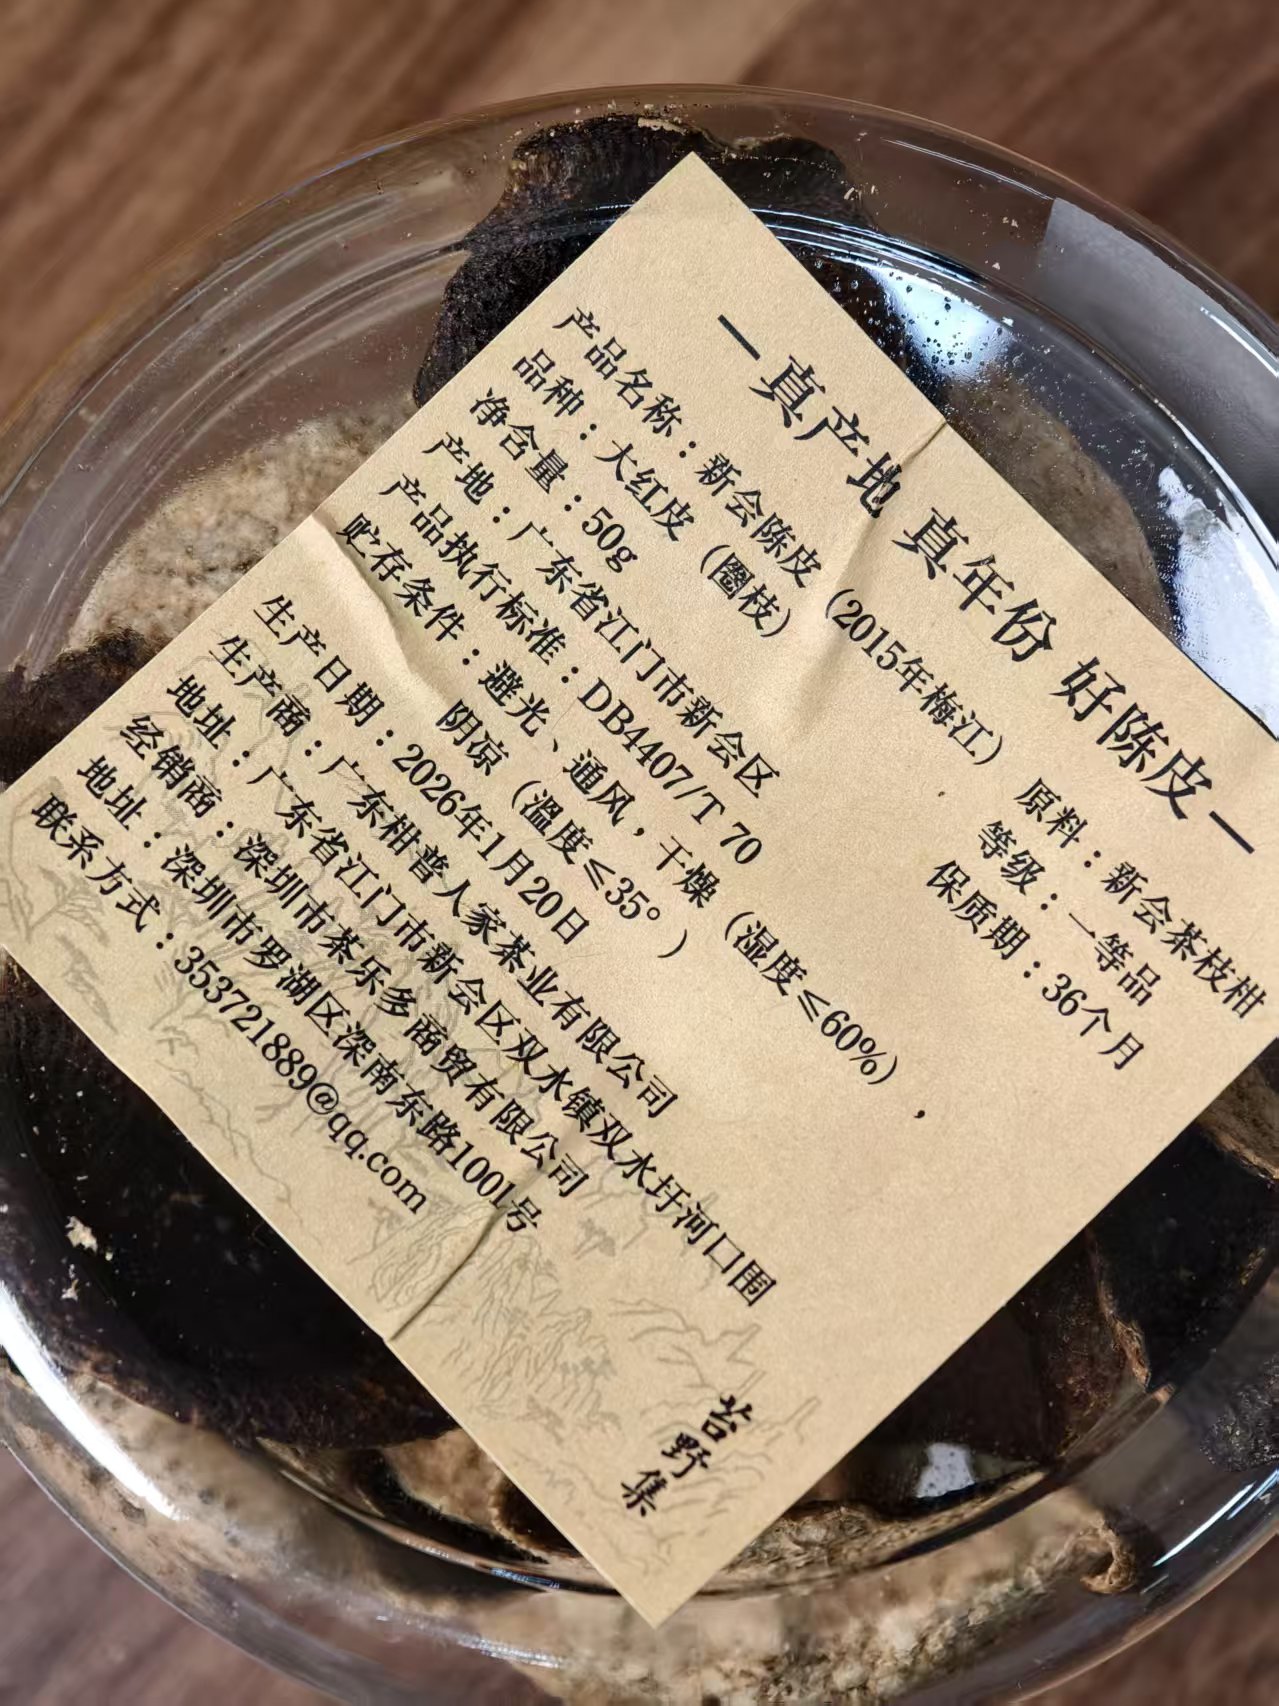 一真产地 真年份 好陈皮一
产品名称：新会陈皮（2015年梅江） 原料：新会茶枝柑
品种：大红皮（圈枝） 等级：一等品
净含量：50g 保质期：36个月
产地：广东省江门市新会区
产品执行标准：DB4407/T 70
贮存条件：避光、通风，干燥（湿度≤60%），
阴凉（温度≤35°）
生产日期：2026年1月20日
生产商：广东柑普人家茶业有限公司
地址：广东省江门市新会区双水镇双水圩河口围
经销商：深圳市茶乐多商贸有限公司
地址：深圳市罗湖区深南东路1001号
联系方式：353721889@qq.com
苔野集